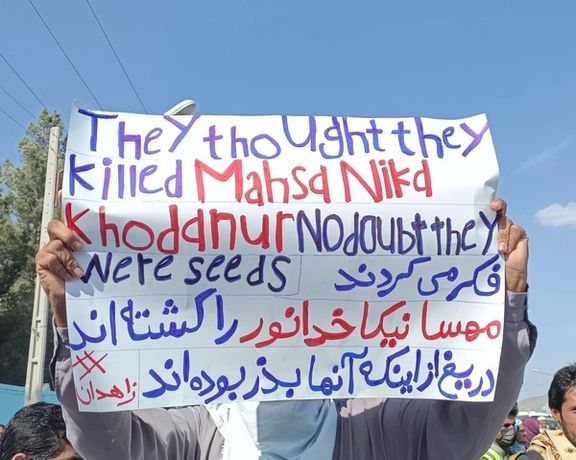 They thought they
killed Mahsa Nika
khodanur No doubt they
were seeds فکر می کردند
مهسا نیکا خدانور را کشته اند
دریغ از اینکه آنها بذر بوده اند
## زاهدان